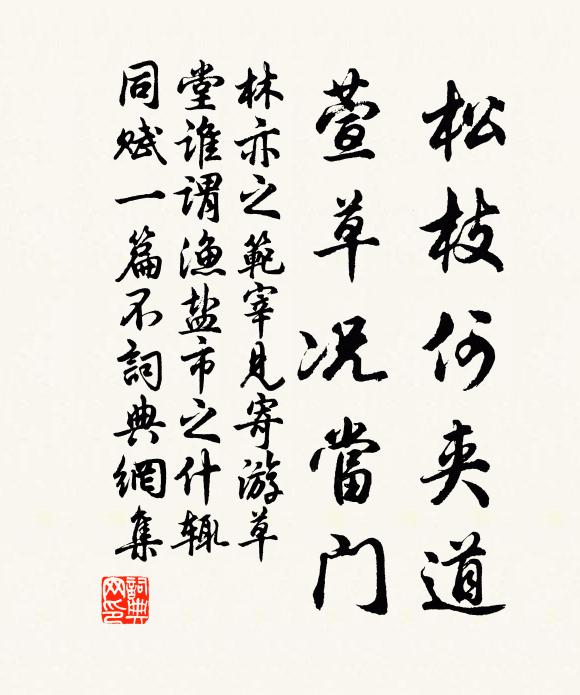 松枝何夹道
萱草况當门
林亦之範宰見寄游草
堂谁谓渔盐市之什辄
同赋一篇不詞典網集
詞典網印